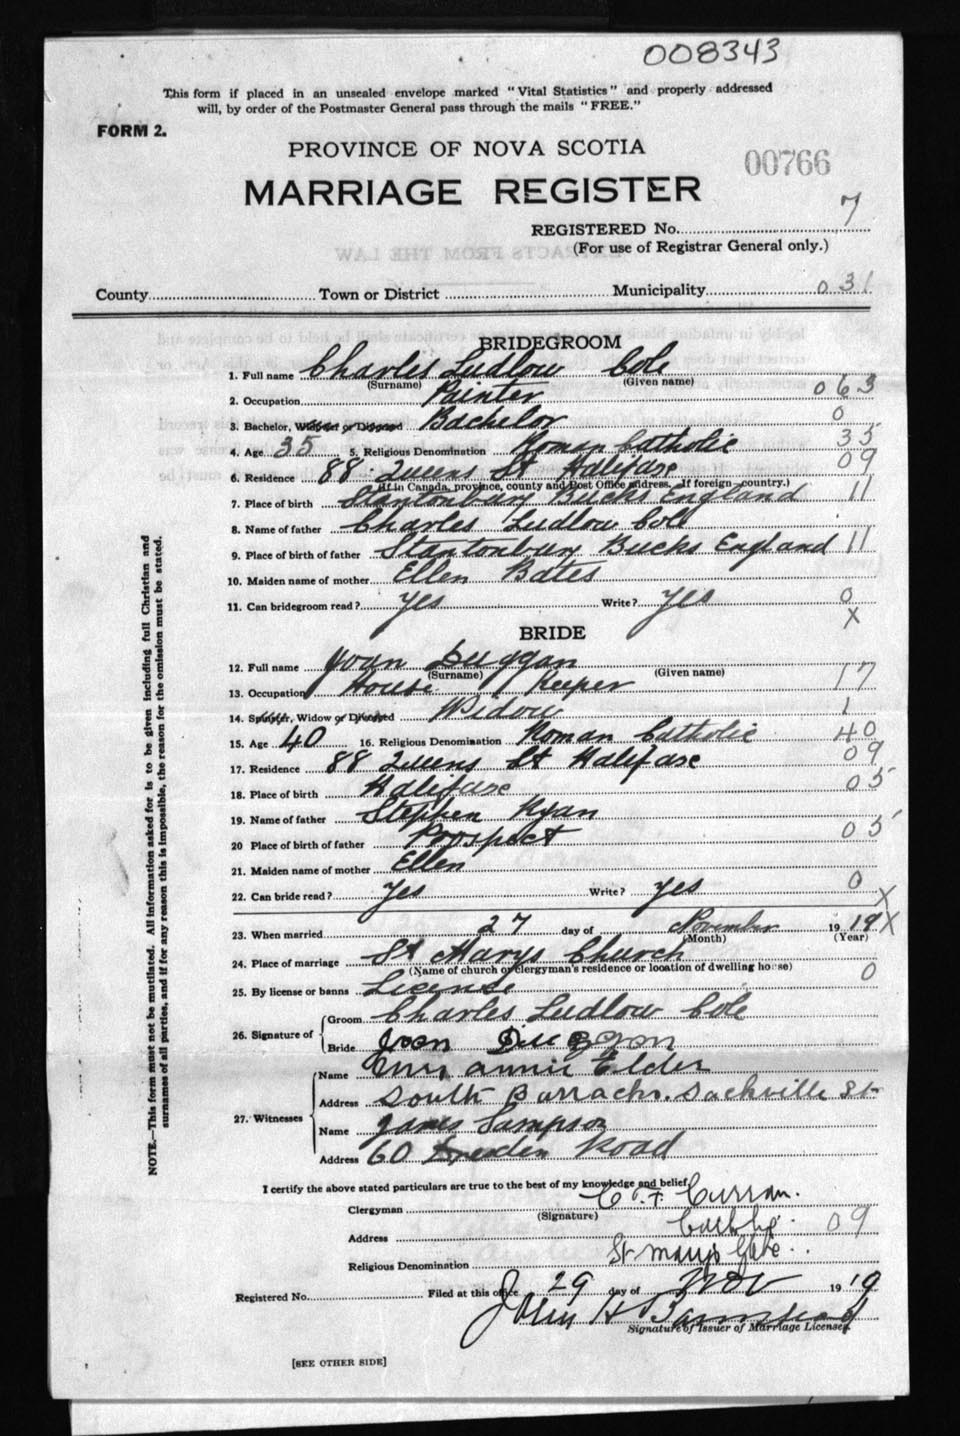 008343
This form if placed in an unsealed envelope marked "Vital Statistics" and properly addressed
will, by order of the Postmaster General pass through the mails "FREE."
FORM 2.
PROVINCE OF NOVA SCOTIA
00766
MARRIAGE REGISTER
REGISTERED No. 7
(For use of Registrar General only.)
County Town or District Municipality 031
BRIDEGROOM
1. Full name Charles Ludlow Cole
(Surname) (Given name)
2. Occupation Painter 063
3. Bachelor, Widower or Divorced Bachelor 0
4. Age 35 5. Religious Denomination Roman Catholic 35
6. Residence 88 Queens St Halifax 09
(If in Canada, province, county and Post Office address. If foreign country.)
7. Place of birth Stantonbury Bucks England 11
8. Name of father Charles Ludlow Cole
9. Place of birth of father Stantonbury Bucks England 11
10. Maiden name of mother Ellen Bates
11. Can bridegroom read? Yes Write? Yes 0
X
BRIDE
12. Full name Joan Duggan
(Surname) (Given name)
13. Occupation House Keeper 17
14. Spinster, Widow or Divorced Widow 1
15. Age 40 16. Religious Denomination Roman Catholic 40
17. Residence 88 Queens St Halifax 09
18. Place of birth Halifax 05
19. Name of father Stephen Ryan
20 Place of birth of father Prospect 05
21. Maiden name of mother Ellen
22. Can bride read? Yes Write? Yes 0
X
23. When married 27 day of November 19 19 X
(Month) (Year)
24. Place of marriage St Marys Church
(Name of church or clergyman's residence or location of dwelling house)
25. By license or banns License 0
26. Signature of Groom Charles Ludlow Cole
Bride Joan Duggan
27. Witnesses
Name Mrs Annie Elder
Address South Barracks. Sackville St
Name James Sampson
Address 60 Dresden Road
I certify the above stated particulars are true to the best of my knowledge and belief.
Clergyman C. F. Curran.
(Signature)
Address Catholic 09
Religious Denomination St Mary's Glebe.
Registered No. Filed at this office 29 day of Nov 19 19
John H Barnstead
Signature of Issuer of Marriage Licenses.
[SEE OTHER SIDE]
NOTE.—This form must not be mutilated. All information asked for is to be given including full Christian and
surnames of all parties, and if for any reason this is impossible, the reason for the omission must be stated.